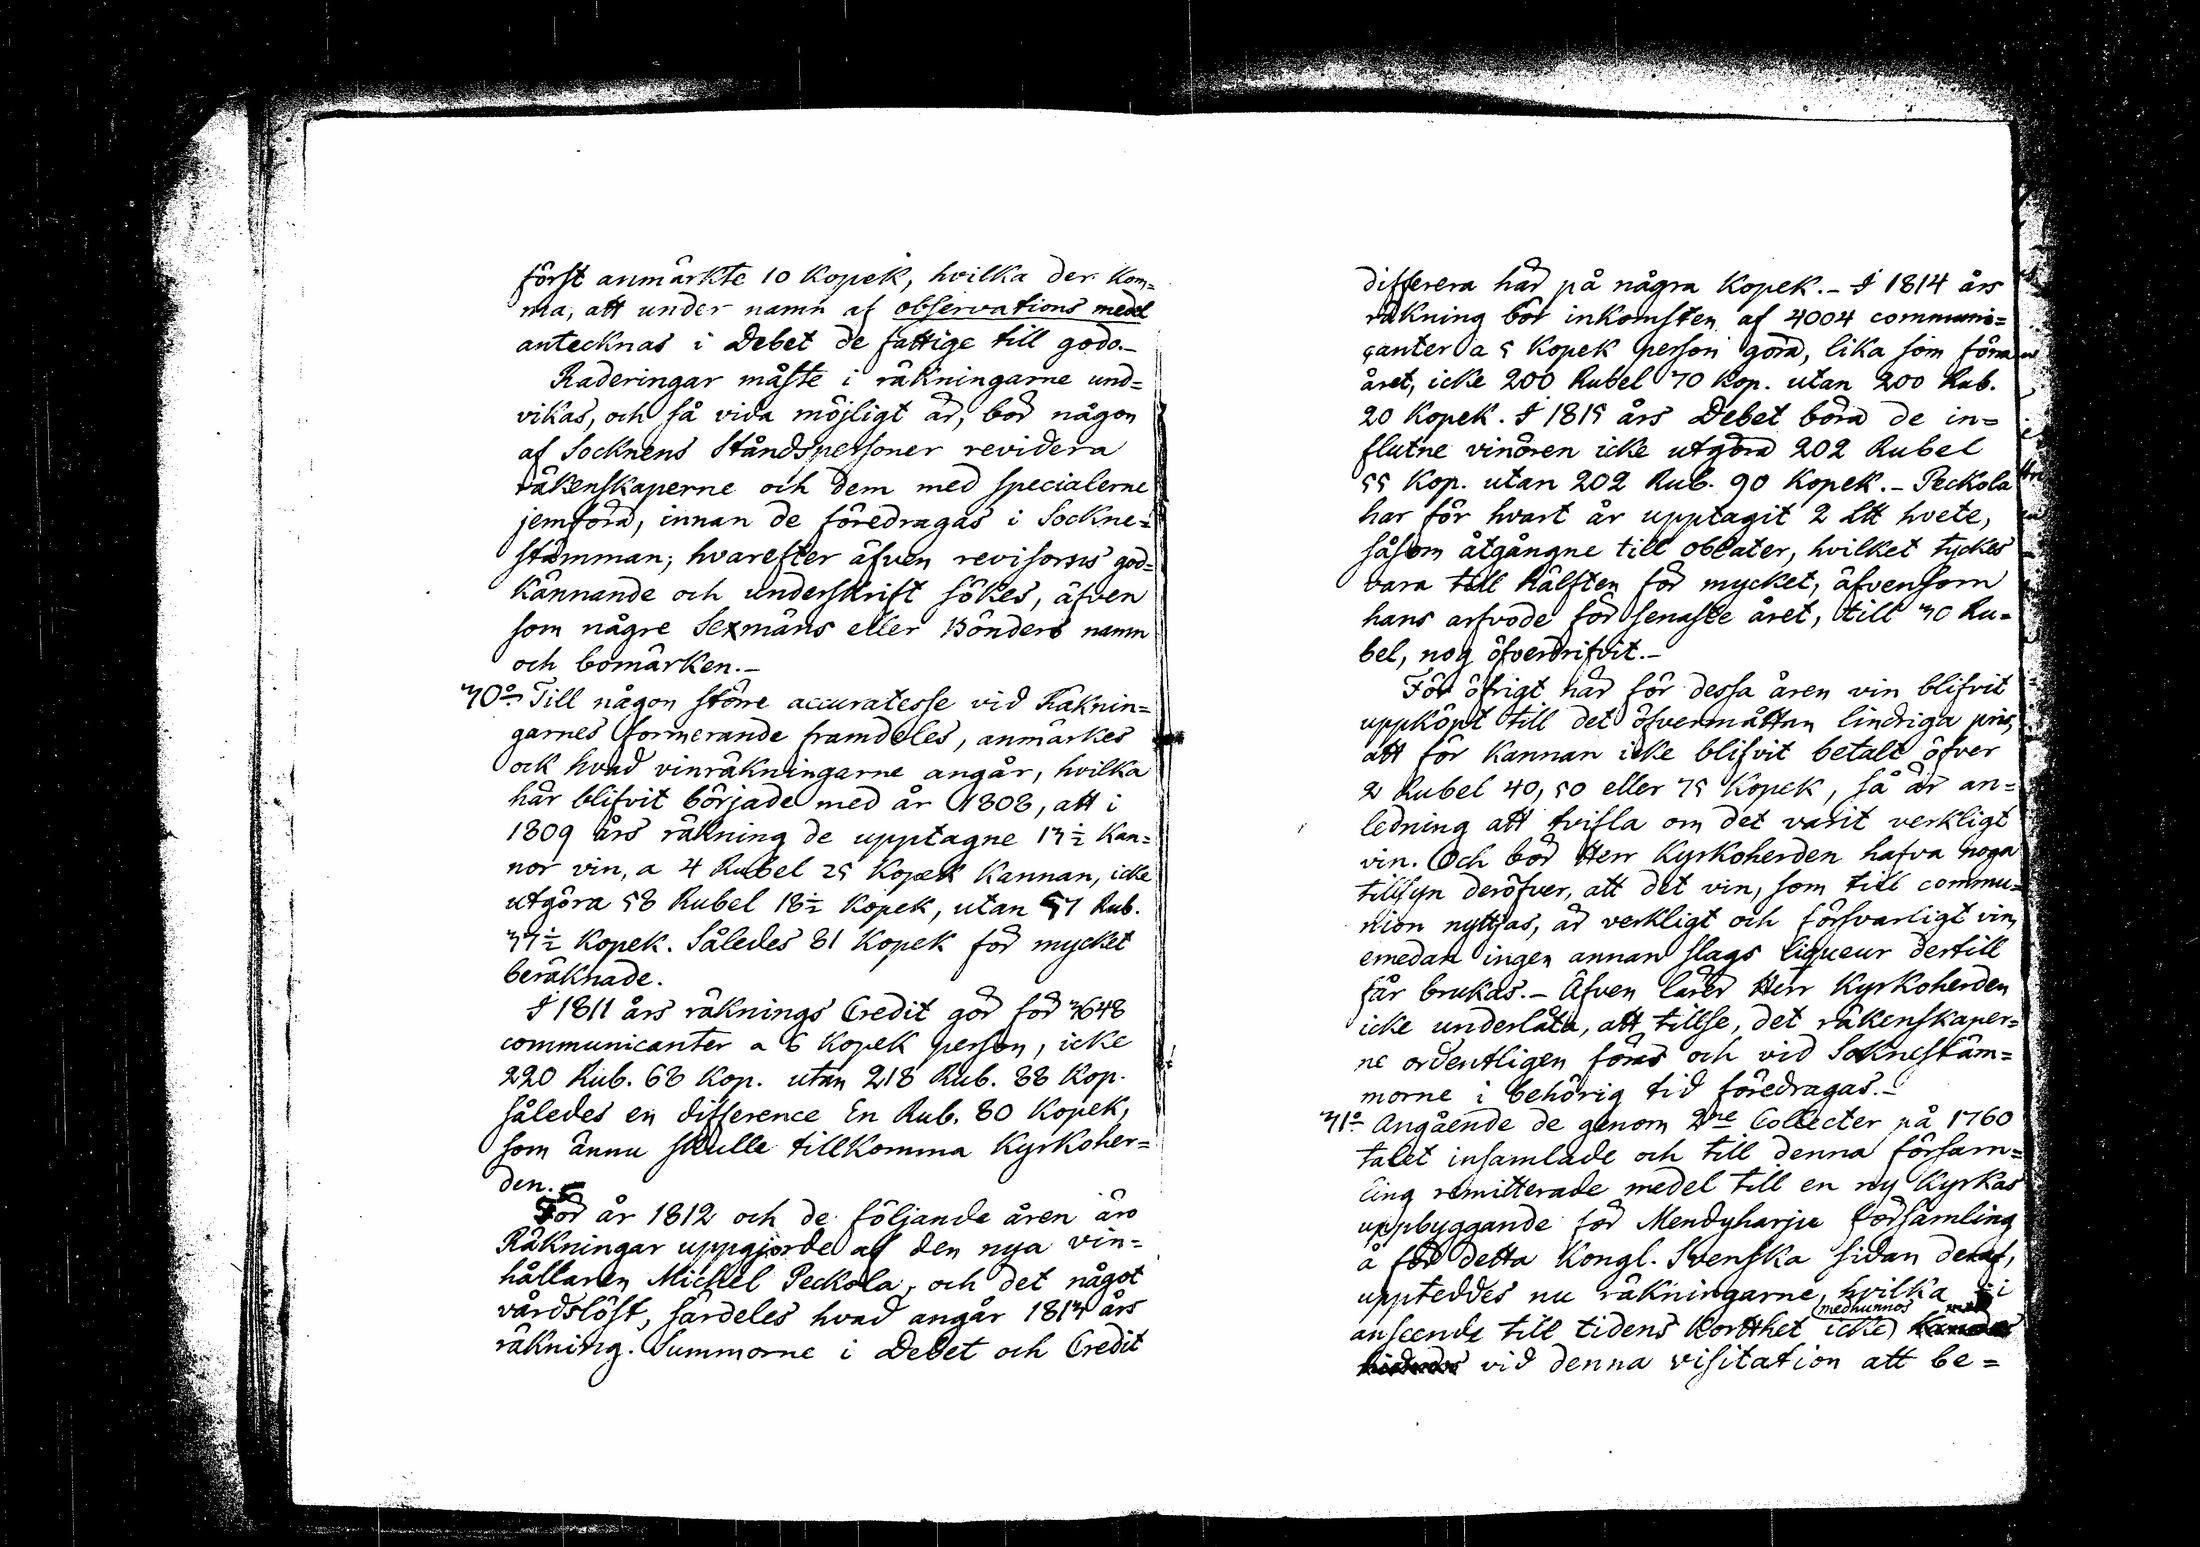 först anmärkte 10 Kopek, hvilka der kom=
ma, att under namn af observations medel
antecknas i Debet de fattige till godo.—
Raderingar måste i räkningarne und=
vikas, och så vida möjligt är, bör någon
af Socknens Ståndspersoner revidera
räkenskaperne och dem med specialerne
jemföra, innan de föredragas i Sockne=
stämman; hvarefter äfven revisorns god=
kännande och underskrift sökes, äfven
som någre Sexmäns eller Bönders namn
och bomärken.—
30º Till någon större accuratesse vid Räknin=
garnes formerande framdeles, anmärkes
ock hvad vinräkningarne angår, hvilka
här blifvit började med år 1808, att i
1809 års räkning de upptagne 13½ Kan=
nor vin, a 4 Rubel 25 Kopek Kannan, icke
utgöra 58 Rubel 18½ Kopek, utan 57 Rub.
37½ Kopek. Således 81 Kopek för mycket
beräknade.
I 1811 års räknings Credit gör för 3648
communicanter a 6 Kopek person, icke
220 Rub. 68 Kop. utan 218 Rub. 88 Kop.
således en difference En Rub. 80 Kopek,
som ännu skulle tillkomma Kyrkoher=
den.
För år 1812 och de följande åren äro
Räkningar uppgjorde af den nya vin=
hållaren Michel Peckola, och det något
vårdslöst, särdeles hvad angår 1813 års
räkning. Summorne i Debet och Credit
differera här på några Kopek.— I 1814 års
räkning bör inkomsten af 4004 communi=
canter a 5 Kopek person göra, lika som förra
året, icke 200 Rubel 70 Kop. utan 200 Rub.
20 Kopek. I 1815 års Debet böra de in=
flutne vinören icke utgöra 202 Rubel
55 Kop. utan 202 Rub. 90 Kopek.— Peckola
har för hvart år upptagit 2 L℔ hvete,
såsom åtgångne till oblater, hvilket tyckes
vara till hälften för mycket, äfvensom
hans arfvode för senaste året, till 30 Ru=
bel, nog öfverdrifvit.—
För öfrigt här för dessa åren vin blifvit
uppköpt till det öfvermåttan lindriga pris,
att för Kannan icke blifvit betalt öfver
2 Rubel 40, 50 eller 75 Kopek, så är an=
ledning att tvifla om det varit verkligt
vin. Och bör Herr Kyrkoherden hafva noga
tillsyn deröfver, att det vin, som till commu=
nion nyttjas, är verkligt och försvarligt vin,
emedan ingen annan slags liqueur dertill
får brukas.— Äfven lärer Herr Kyrkoherden
icke underlåta, att tillse, det räkenskaper=
ne ordentligen föras och vid Soknestäm=
morne i behörig tid föredragas.—
31º Angående de genom 2ne Collecter på 1760
talet insamlade och till denna försam=
ling remitterade medel till en ny Kyrkas
uppbyggande för Mendyharju församling
å för detta Kongl. Svenska sidan deraf,
uppteddes nu räkningarne, hvilka i
anseende till tidens korthet icke medhunnos
vid denna visitation att be=